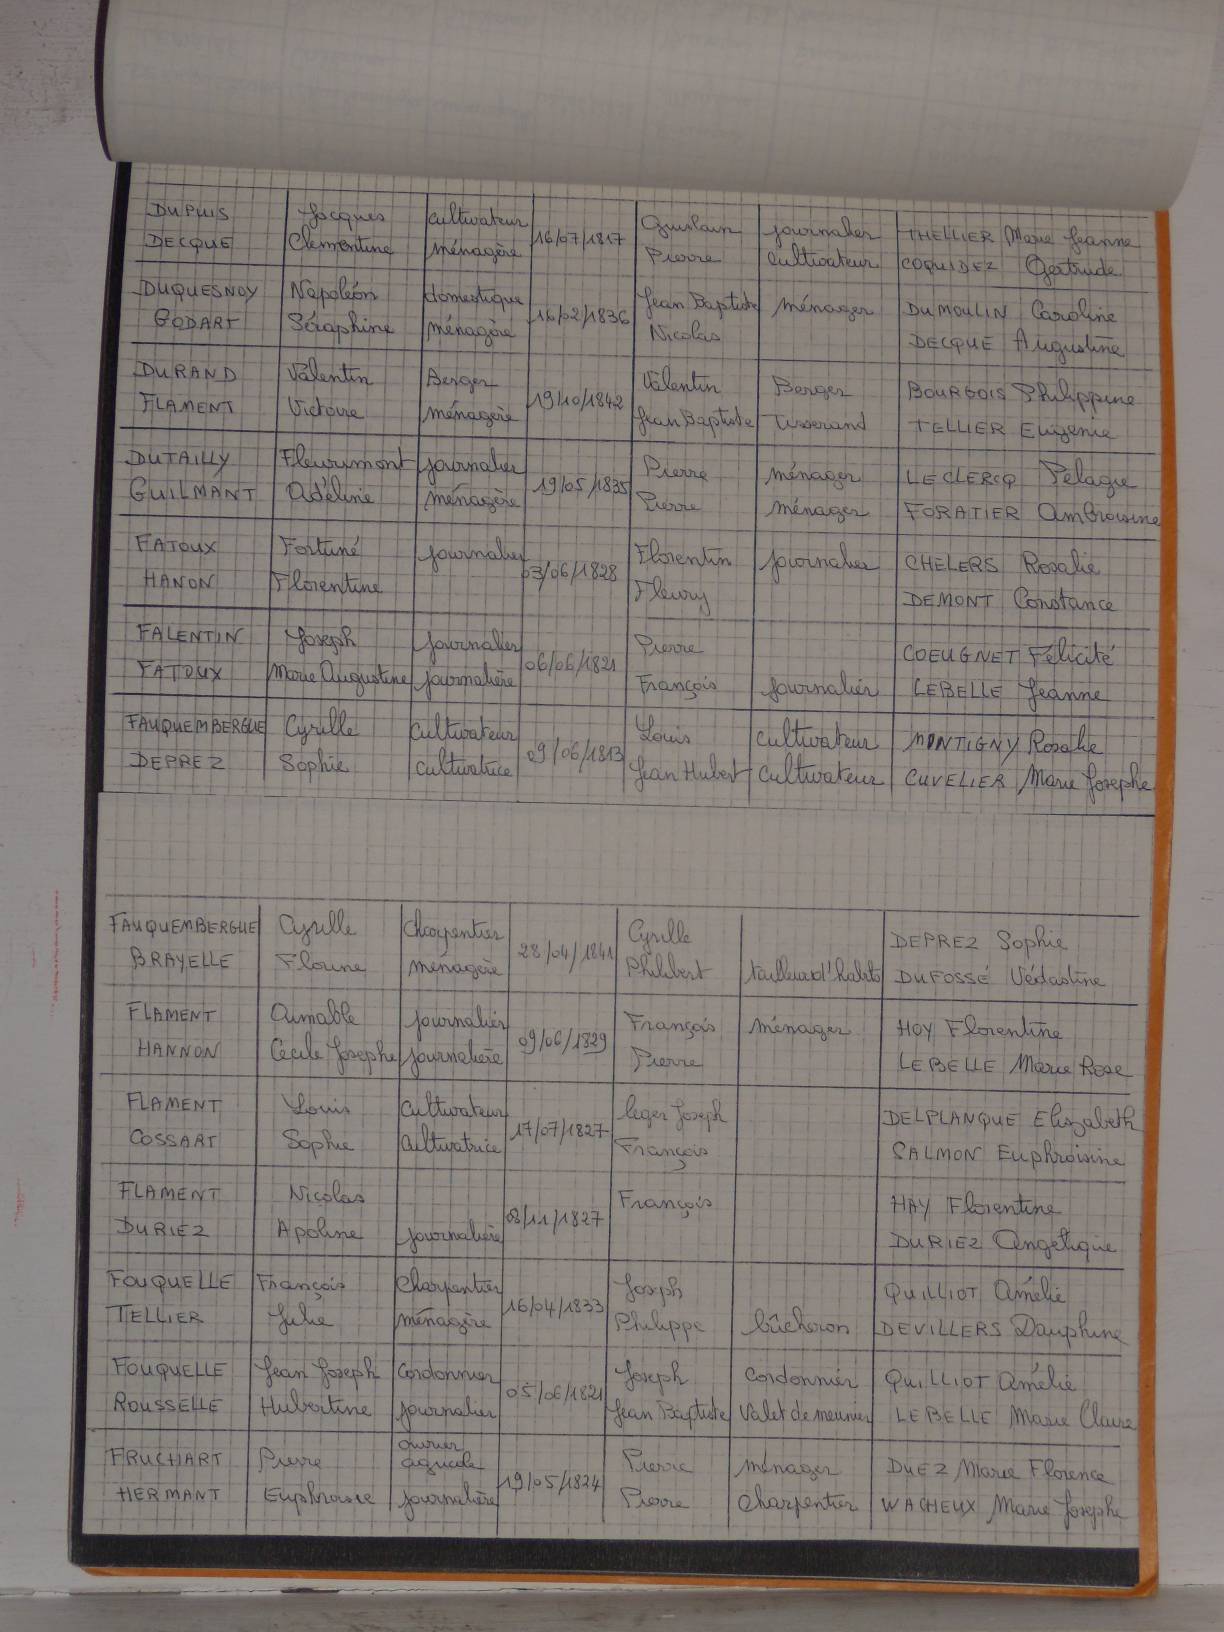 DUPUIS Jacques cultivateur 16/07/1817 Guislain journalier THELLIER Marie Jeanne
DECQUE Clémentine ménagère Pierre cultivateur COQUIDEZ Gertrude
DUQUESNOY Napoléon domestique 16/02/1836 Jean Baptiste ménager DUMOULIN Caroline
GODART Séraphine ménagère Nicolas DECQUE Augustine
DURAND Valentin Berger 19/10/1842 Valentin Berger BOURGOIS Philippine
FLAMENT Victoire ménagère Jean Baptiste Tisserand TELLIER Eugénie
DUTAILLY Fleurimont journalier 19/05/1835 Pierre ménager LECLERCQ Pélagie
GUILMANT Adéline ménagère Pierre ménager FORATIER Ambroisine
FATOUX Fortuné journalier 03/06/1828 Florentin journalier CHELERS Rosalie
HANON Florentine Fleury DEMONT Constance
FALENTIN Joseph journalier 06/06/1821 Pierre COEUGNET Félicité
FATOUX Marie Augustine journalière François journalier LEBELLE Jeanne
FAUQUEMBERGUE Cyrille cultivateur 09/06/1813 Louis cultivateur MONTIGNY Rosalie
DEPREZ Sophie cultivatrice Jean Hubert cultivateur CUVELIER Marie Josephe
FAUQUEMBERGUE Cyrille Charpentier 28/04/1841 Cyrille DEPREZ Sophie
BRAYELLE Florine ménagère Philibert tailleur d'habits DUFOSSÉ Védastine
FLAMENT Aimable journalier 09/06/1829 François ménager HOY Florentine
HANNON Cécile Josephe journalière Pierre LEBELLE Marie Rose
FLAMENT Louis cultivateur 17/07/1827 leger Joseph DELPLANQUE Elisabeth
COSSART Sophie cultivatrice François SALMON Euphroisine
FLAMENT Nicolas 08/11/1827 François HAY Florentine
DURIEZ Apoline journalière DURIEZ Angélique
FOUQUELLE François Charpentier 16/04/1833 Joseph QUILLIOT Amélie
TELLIER Julie ménagère Philippe bûcheron DEVILLERS Dauphine
FOUQUELLE Jean Joseph Cordonnier 05/06/1821 Joseph Cordonnier QUILLIOT Amélie
ROUSSELLE Hubertine journalier Jean Baptiste Valet de meunier LEBELLE Marie Claire
FRUCHART Pierre ouvrier agricole 19/05/1824 Pierre ménager DUEZ Marie Florence
HERMANT Euphrosie journalière Pierre Charpentier WACHEUX Marie Josephe